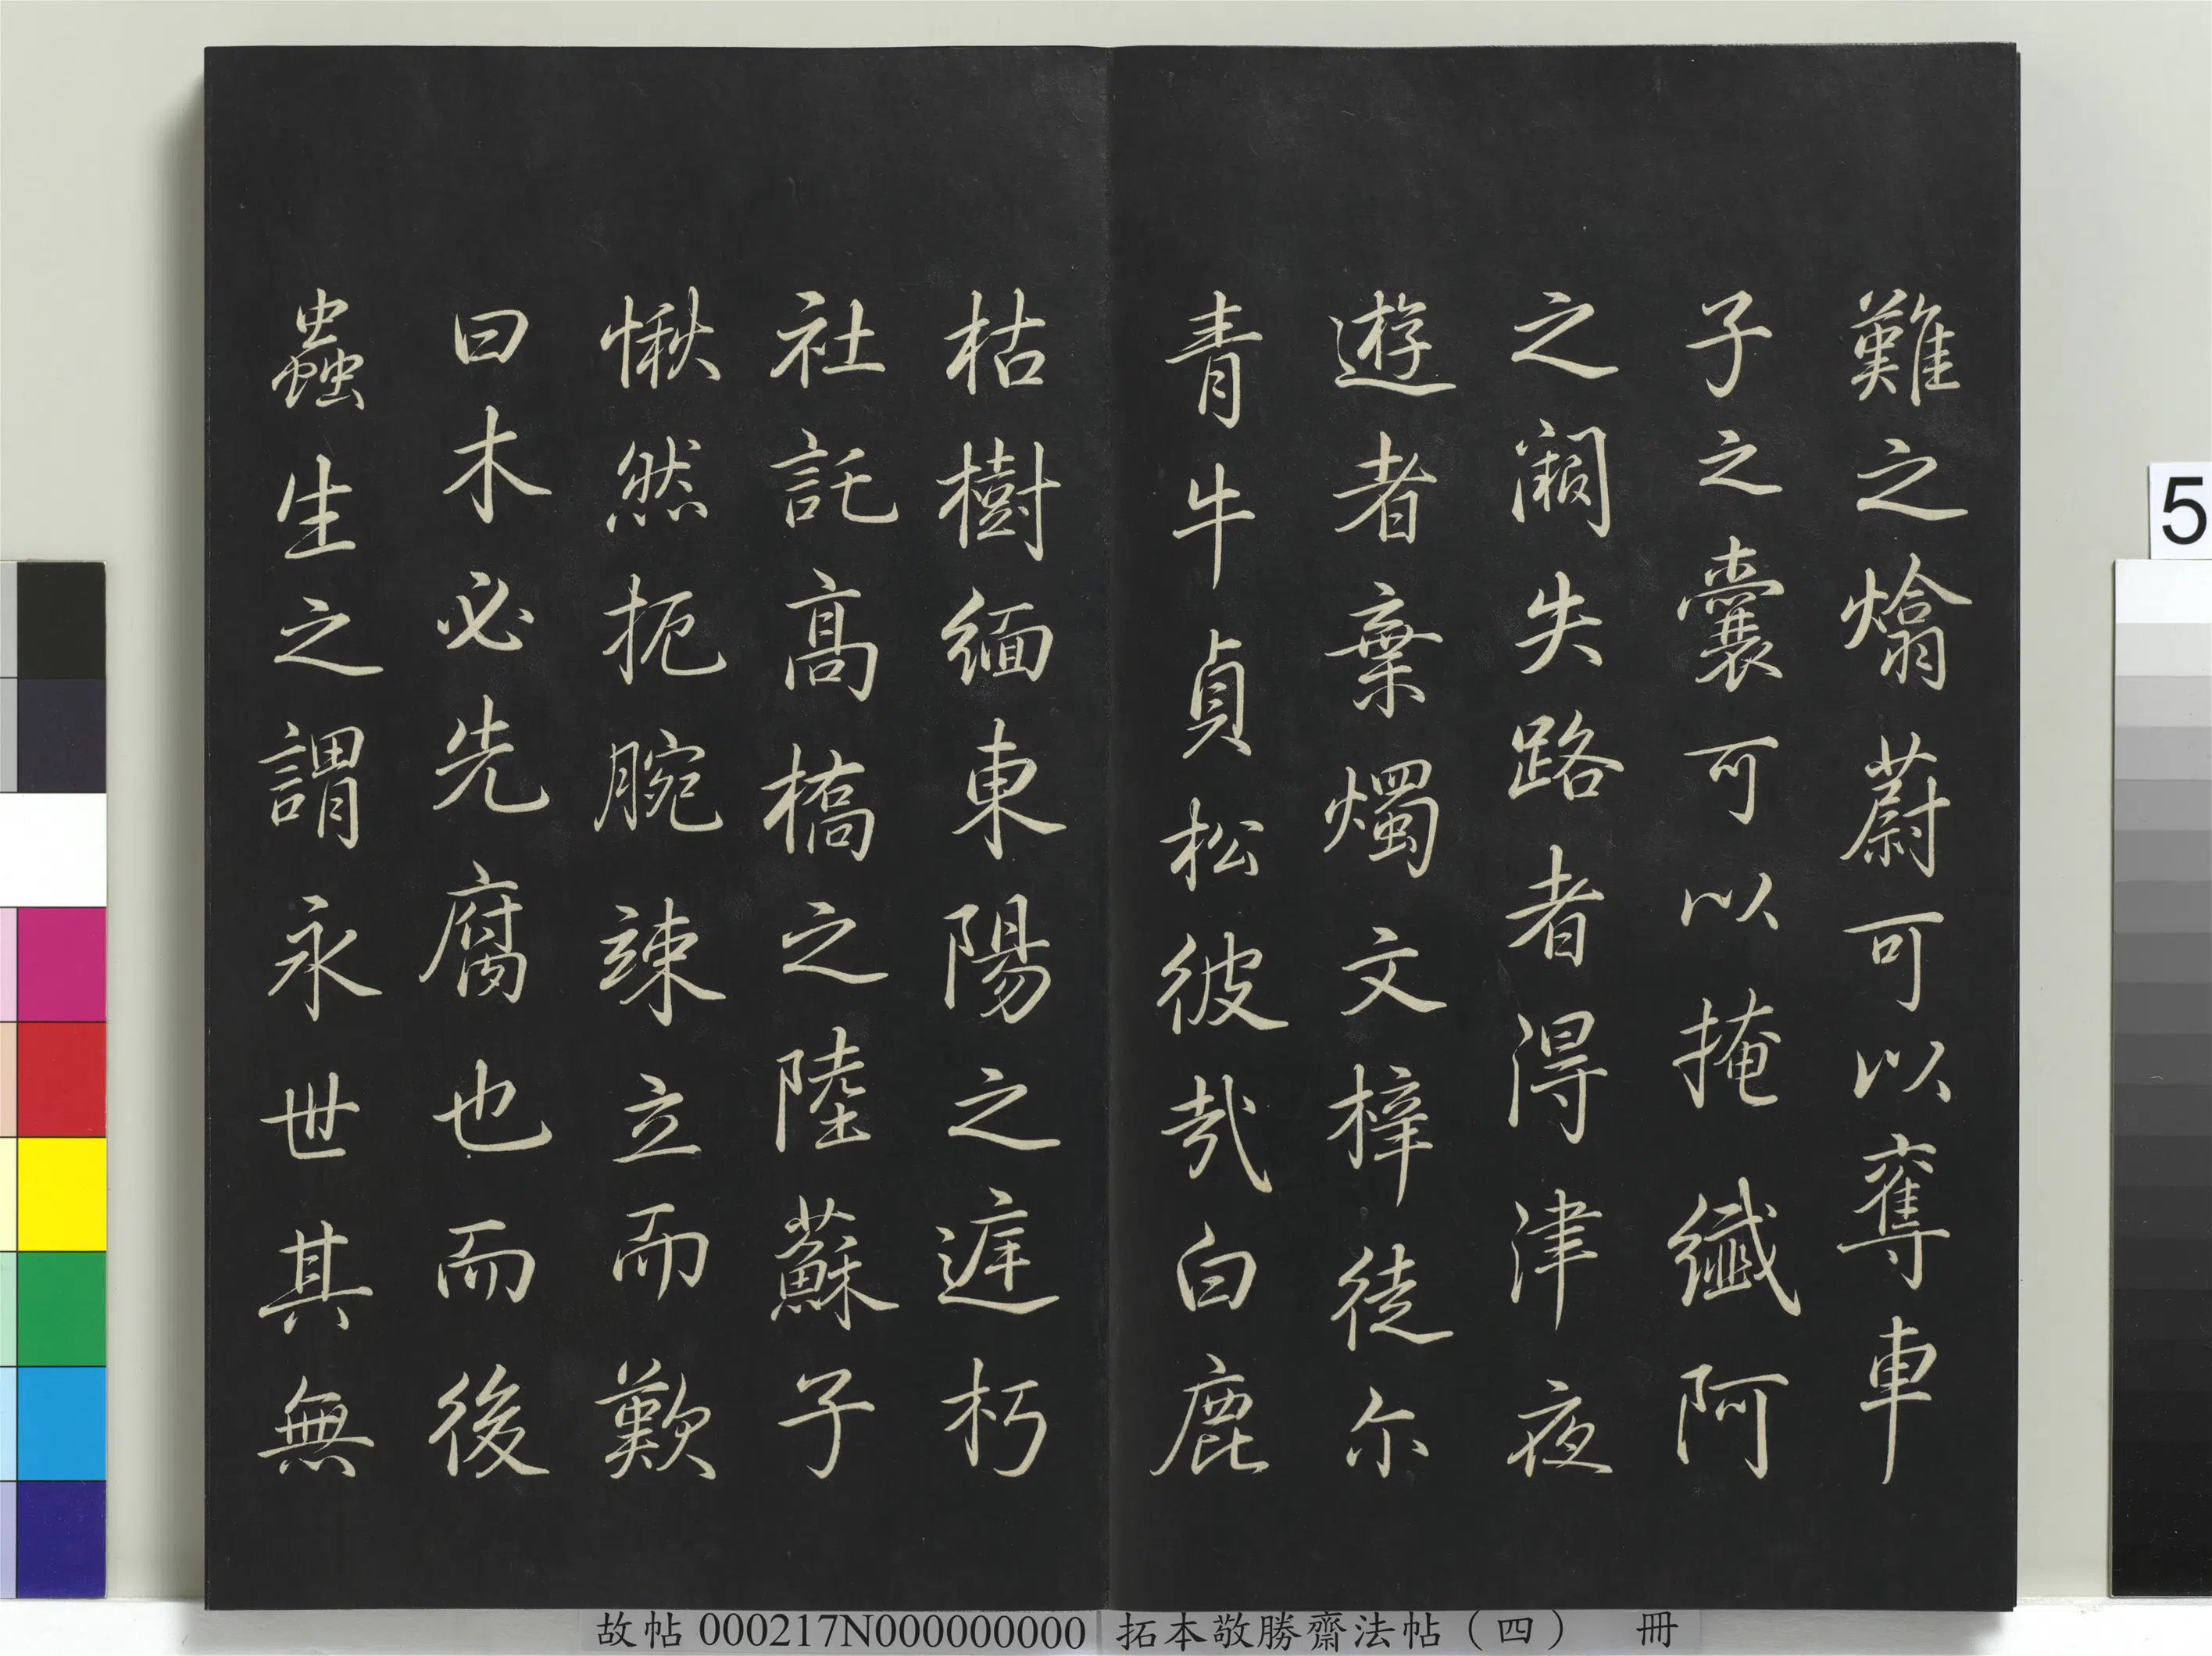 難之熻蔚可以奪車
子之囊可以掩纖阿
之阙失路者得津夜
遊者棄燭文梓徒尔
青牛貞松彼哉白鹿
枯樹緬東陽之遲朽
社託高橋之陸蘇子
愀然扼腕竦立而歎
曰木必先腐也而後
蟲生之謂永世其無
5
故帖000217N000000000 拓本敬勝齋法帖（四） 冊